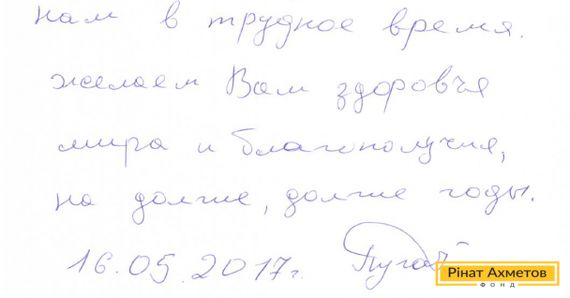 нам в трудное время.
желаем Вам здоровья
мира и благополучия,
на долгие, долгие годы.
16.05.2017г. Пугач
Рінат Ахметов
ФОНД